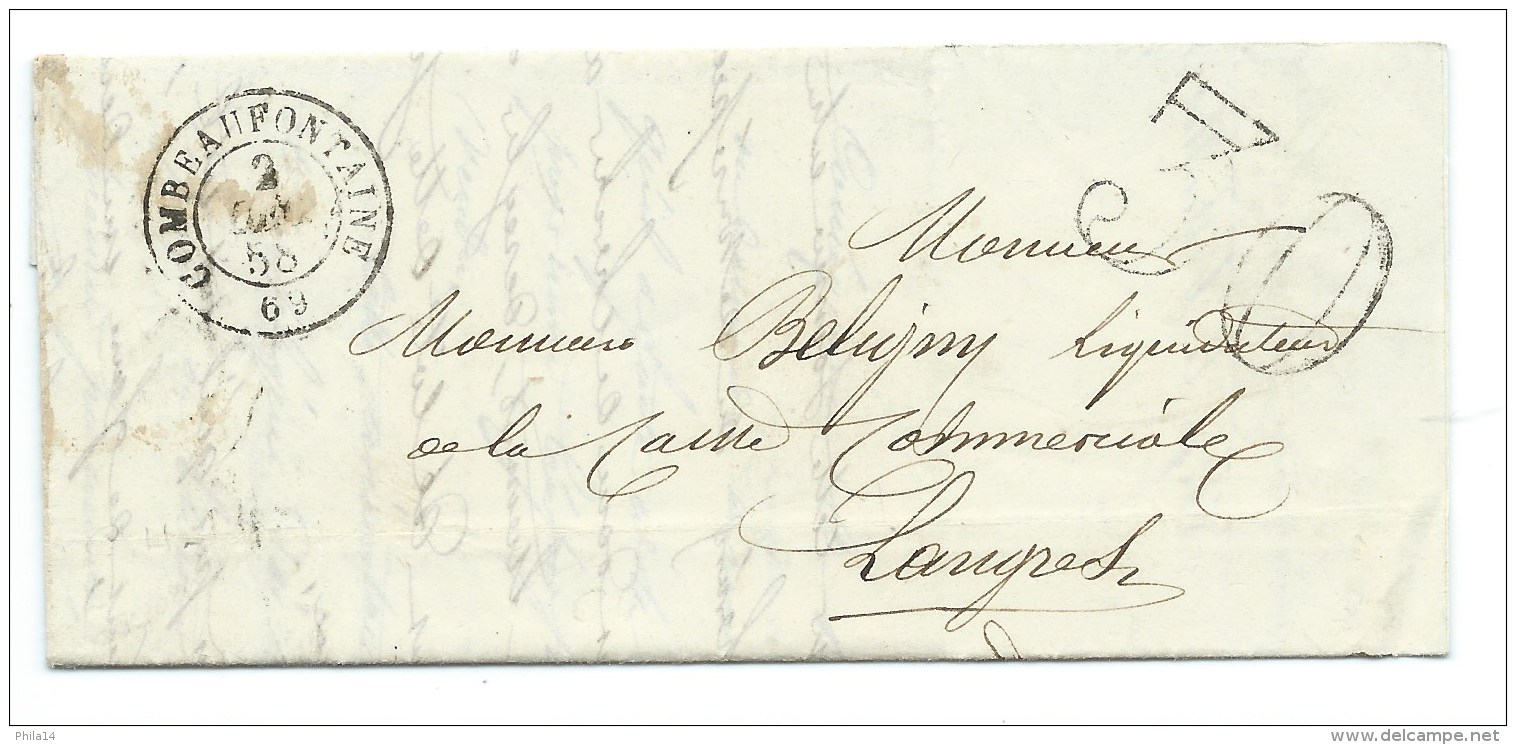 COMBEAUFONTAINE
2
58
69
30
Monsieur
Monsieur Beligny Liquidateur
de la Caisse Commerciale
Langres
Phila14
www.delcampe.net